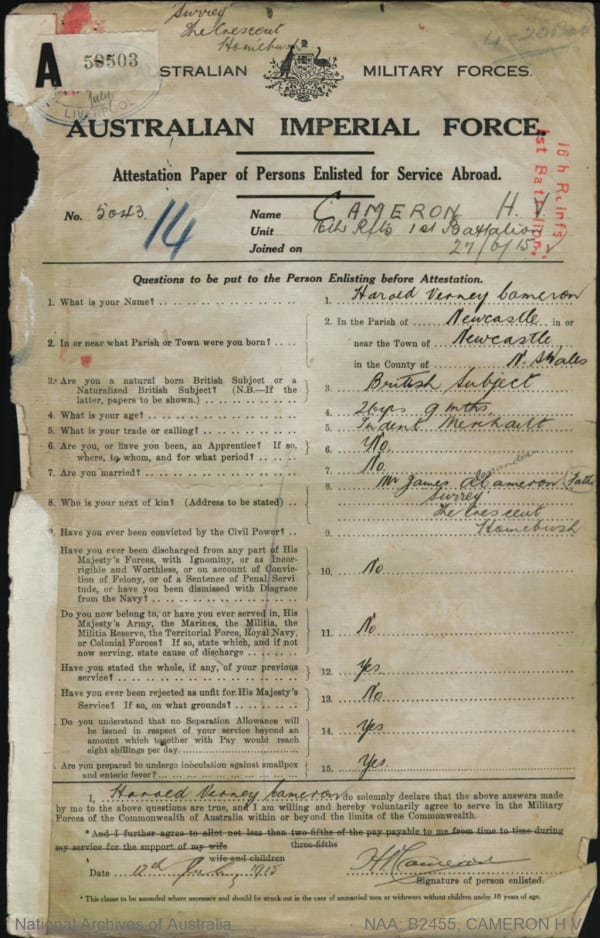 Surrey
The Crescent
Homebush
A 58503
July
LIVERPOO
STRALIAN MILITARY FORCES.
AUSTRALIAN IMPERIAL FORCE.
16h Reinfs
1st Battalion.
Attestation Paper of Persons Enlisted for Service Abroad.
No. 5043
14
Name CAMERON H. V.
Unit 16th Rfts 1st Battalion
Joined on 27/6/15
Questions to be put to the Person Enlisting before Attestation.
1. What is your Name? 1. Harold Verney Cameron
2. In or near what Parish or Town were you born? 2. In the Parish of Newcastle in or
near the Town of Newcastle
in the County of N. S Wales
3. Are you a natural born British Subject or a
Naturalized British Subject? (N.B.—If the
latter, papers to be shown.) 3. British Subject
4. What is your age? 4. 26 yrs 9 mths
5. What is your trade or calling? 5. Indent Merchant
6. Are you, or have you been, an Apprentice? If so,
where, to whom, and for what period? 6. No.
7. Are you married? 7. No.
8. Who is your next of kin? (Address to be stated) 8. Mr James Alexander Cameron (Fath
Surrey
The Crescent
Homebush
9. Have you ever been convicted by the Civil Power? 9.
Have you ever been discharged from any part of His
Majesty's Forces, with Ignominy, or as Incor-
rigible and Worthless, or on account of Convic-
tion of Felony, or of a Sentence of Penal Servi
tude, or have you been dismissed with Disgrace
from the Navy? 10. No
Do you now belong to, or have you ever served in, His
Majesty's Army, the Marines, the Militia, the
Militia Reserve, the Territorial Force, Royal Navy,
or Colonial Forces? If so, state which, and if not
now serving, state cause of discharge 11. No
Have you stated the whole, if any, of your previous
service? 12. Yes
Have you ever been rejected as unfit for His Majesty's
Service? If so, on what grounds? 13. No
Do you understand that no Separation Allowance will
be issued in respect of your service beyond an
amount which together with Pay would reach
eight shillings per day 14. Yes
Are you prepared to undergo inoculation against smallpox
and enteric fever? 15. Yes
I, Harold Verney Cameron do solemnly declare that the above answers made
by me to the above questions are true, and I am willing and hereby voluntarily agree to serve in the Military
Forces of the Commonwealth of Australia within or beyond the limits of the Commonwealth.
*And I further agree to allot not less than two-fifths of the pay payable to me from time to time during
three-fifths
my service for the support of my wife
wife and children
Date 12th July 1915 H V Cameron
Signature of person enlisted.
*This clause to be amended where necessary and should be struck out in the case of unmarried men or widowers without children under 18 years of age.
National Archives of Australia NAA: B2455, CAMERON H V